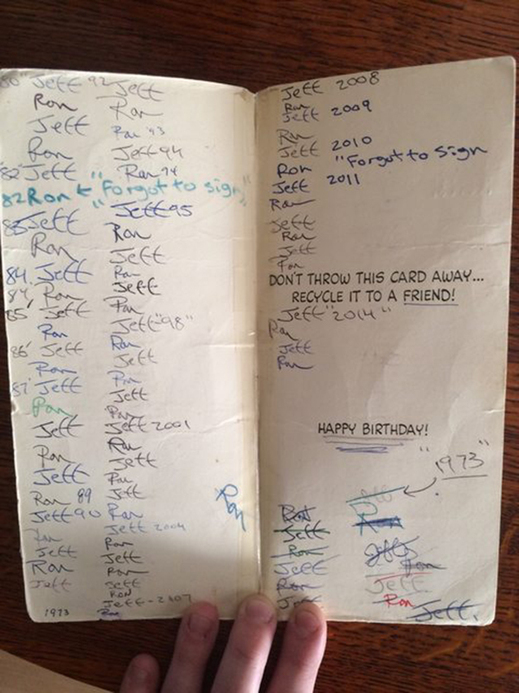 80" Jeff 92 Jeff
Ron Ron
Jeff Ron '93
Ron Jeff 94
'82 Jeff Ron 94
82 Ron ← "Forgot to sign"
83 Jeff Jeff 95
Ron Ron
84. Jeff Jeff
84' Ron Ron
85' Jeff Jeff
Ron Ron
86' Jeff Jeff "98"
Ron Ron
87' Jeff Jeff
Ron Ron
Jeff Jeff
Ron Ron
Jeff Jeff 2001
Ron 89 Ron
Jeff 90 Jeff
Ron Ron
Jeff Jeff
Ron Ron
Jeff Jeff 2004
1973 Ron
Jeff
Ron
Jeff
RON
Jeff - 2007
Ron
Ron
Jeff 2008
Ron
Jeff 2009
Ron
Jeff 2010
Ron "Forgot to sign
Jeff 2011
Ron
Jeff
Ron
Jeff
Ron
DON'T THROW THIS CARD AWAY...
RECYCLE IT TO A FRIEND!
Jeff "2014"
Ron
Jeff
Ron
HAPPY BIRTHDAY!
"1973"
Ron
Jeff
Ron
Jeff
Ron
Jeff
Jeff
Ron
Jeff
Ron
Jeff
Ron
Jeff.